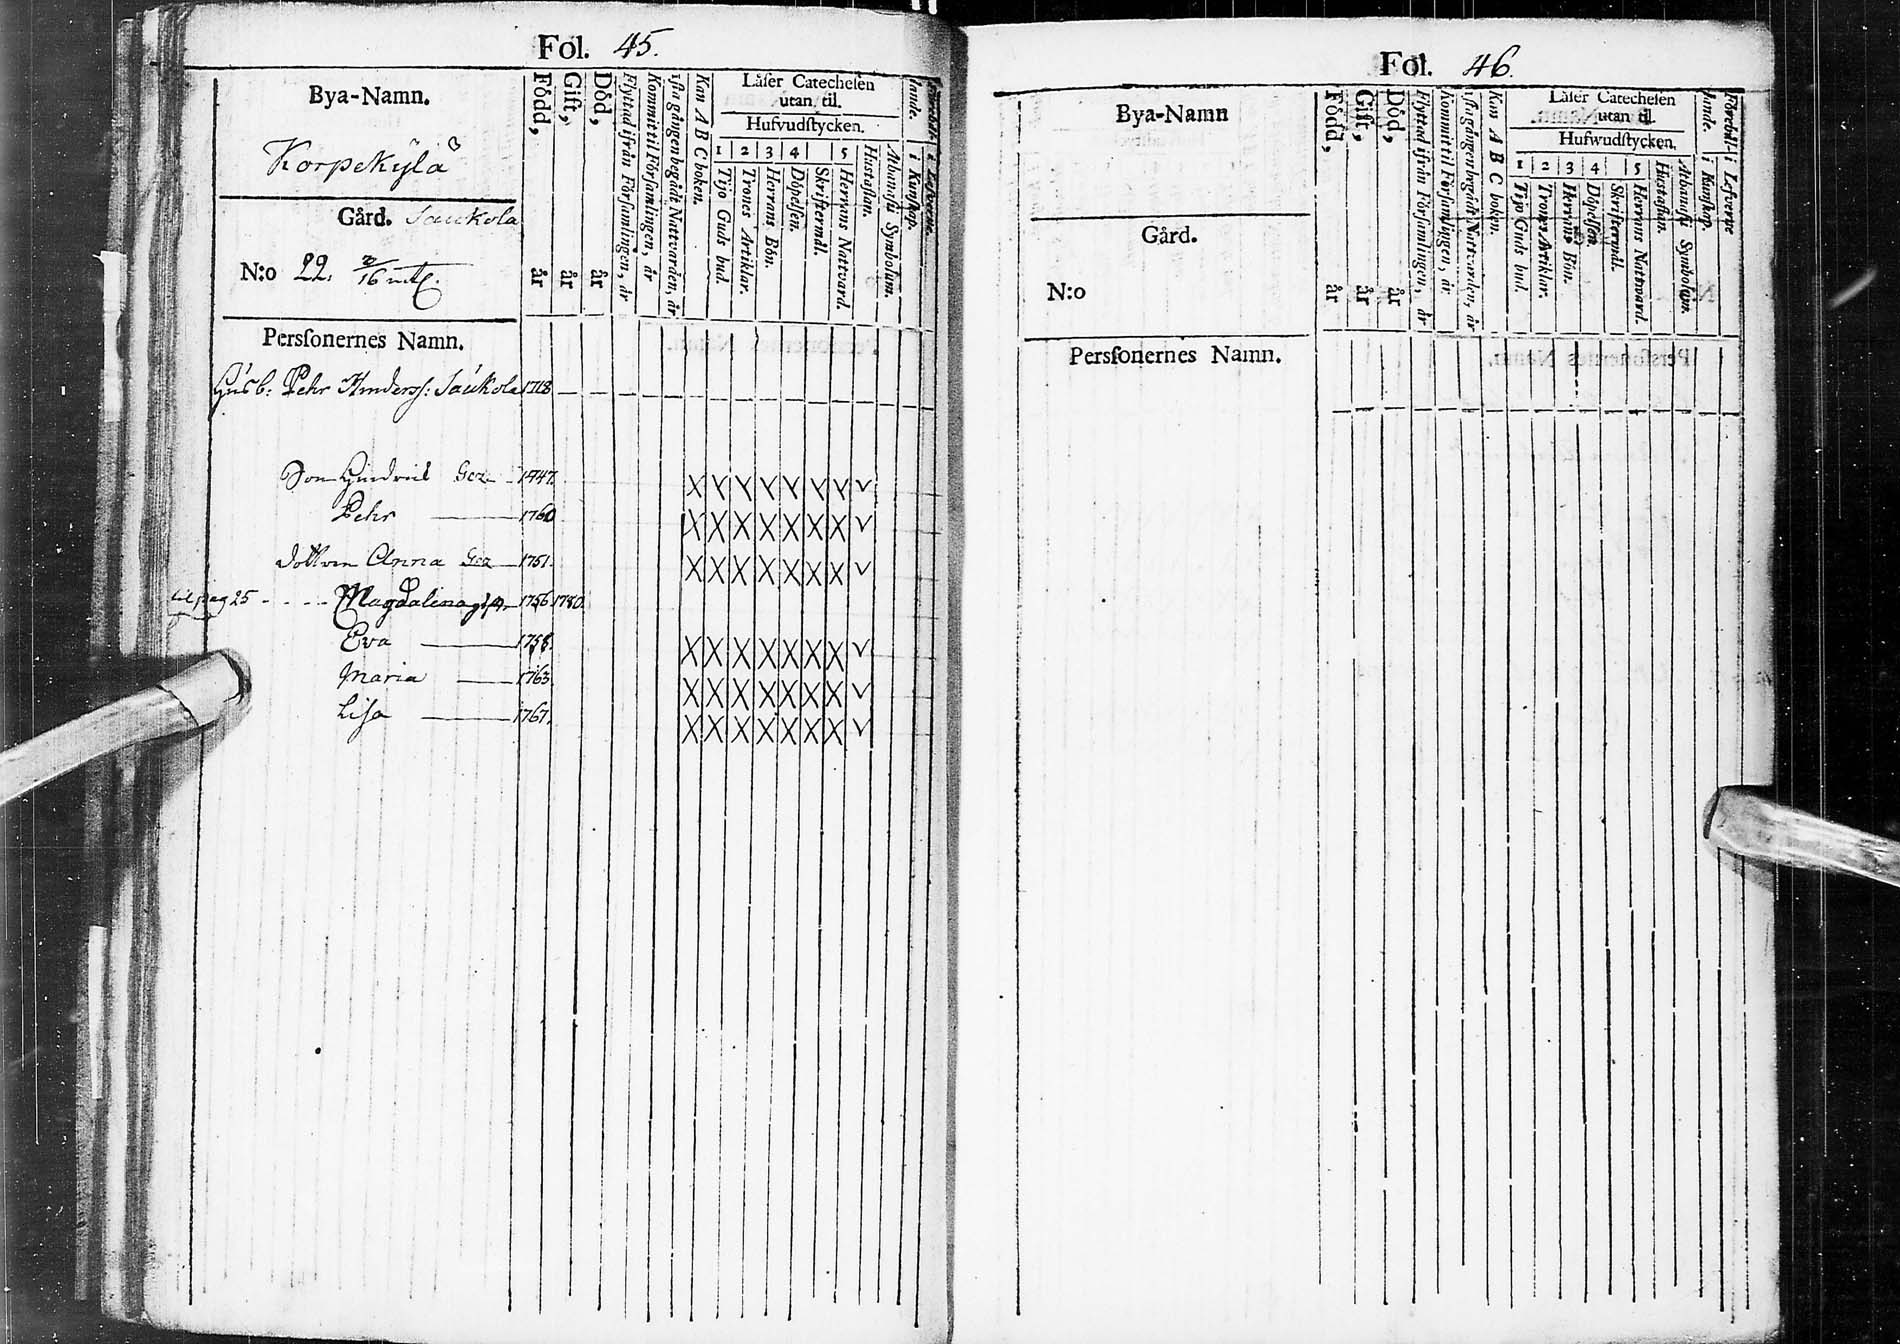 Fol. 45.
Bya-Namn.
Korpekylä
Gård. Saukola
N:o 22. 2/16 mtl.
Perſonernes Namn.
Född, år
Gift, år
Död, år
Flyttad ifrån Förſamlingen, år
Kommit til Förſamlingen, år
iſta gången begådt Nattvarden, år
Kan A B C boken.
Låſer Catecheſen
utan til.
Hufvudſtycken.
1 2 3 4 5
Tijo Guds bud.
Trones Artiklar.
Herrans Bön.
Döpelſen.
Skriftermål.
Herrans Nattvard.
Huſtaflan.
Athanaſii Symbolum.
i Kunſkap.
i Lefverne.
Husb: Pehr Anderss: Saukola 1718
Son Hindric 1747.
Pehr 1760
Anna 1751.
pag 25 - - - - Magdalena 1756 1780.
Eva 1758.
Maria 1763.
Lisa 1767.
Fol. 46.
Bya-Namn
Gård.
N:o
Perſonernes Namn.
Född, år
Gift, år
Död, år
Flyttad ifrån Förſamlingen, år
Kommit til Förſamlingen, år
iſta gången begådt Nattvarden, år
Kan A B C boken.
Låſer Catecheſen
utan til.
Hufwudſtycken.
1 2 3 4 5
Tijo Guds bud.
Trones Artiklar.
Herrans Bön.
Döpelſen.
Skriftermål.
Herrans Nattvard.
Huſtaflan.
Athanaſii Symbolum.
Förebållande.
i Kunſkap.
i Lefverne